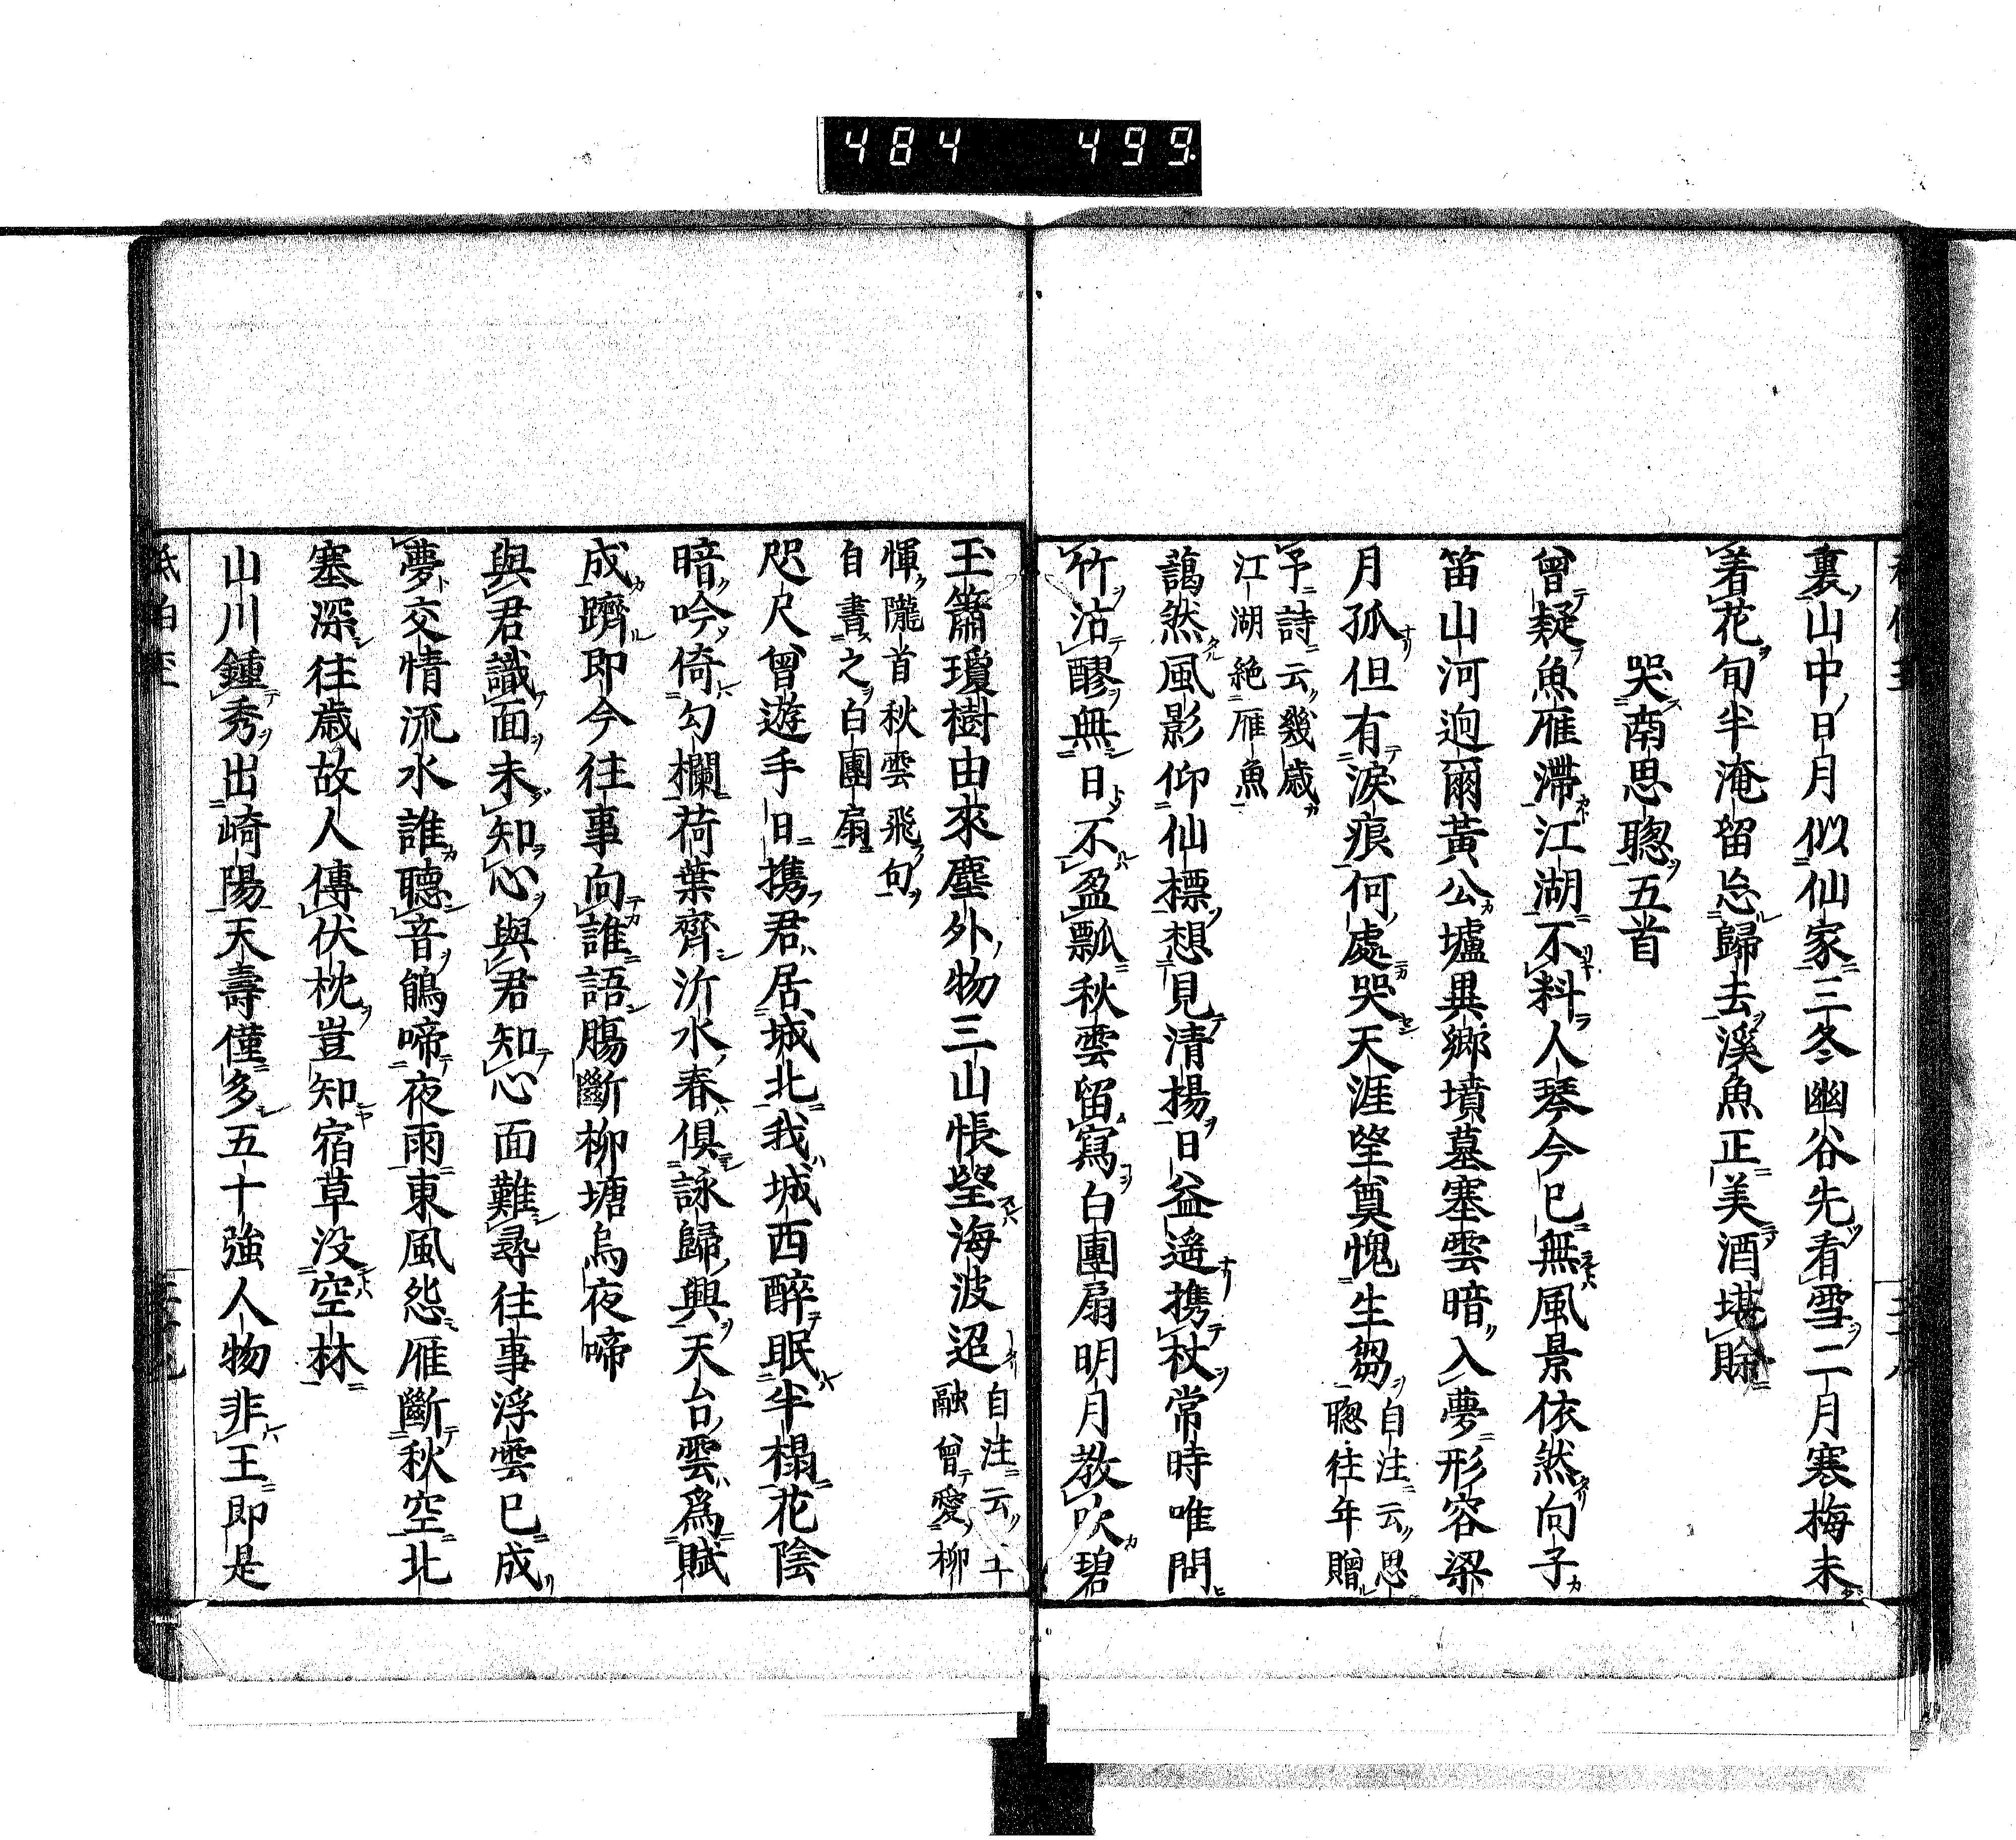 484 499
裏山中日月似仙家三冬幽谷先看雪二月寒梅未
着花旬半淹留忘歸去溪魚正美酒堪賒
哭南思聰五首
曾疑魚雁滯江湖不料人琴今已無風景依然向子
笛山河迥爾黃公壚異鄉墳墓塞雲暗入夢形容梁
月孤但有淚痕何處哭天涯望奠愧生芻自注云思
聰往年贈
予詩云幾歲
江湖絶雁魚
藹然風影仰仙標想見清揚日益遙携杖常時唯問
竹沽醪無日不盈瓢秋雲留寫白團扇明月教吹碧
玉簫瓊樹由來塵外物三山悵望海波迢自注云王
融曾愛柳
惲隴首秋雲飛句
自書之白團扇
咫尺曾遊手日携君居城北我城西醉眠半榻花陰
暗吟倚勾欄荷葉齊沂水春俱詠歸興天台雲爲賦
成躋即今往事向誰語腸斷柳塘烏夜啼
與君識面未知心與君知心面難尋往事浮雲已成
夢交情流水誰聽音鵑啼夜雨東風怨雁斷秋空北
塞深往歲故人傳伏枕豈知宿草没空林
山川鍾秀出崎陽天壽僅多五十強人物非王即是